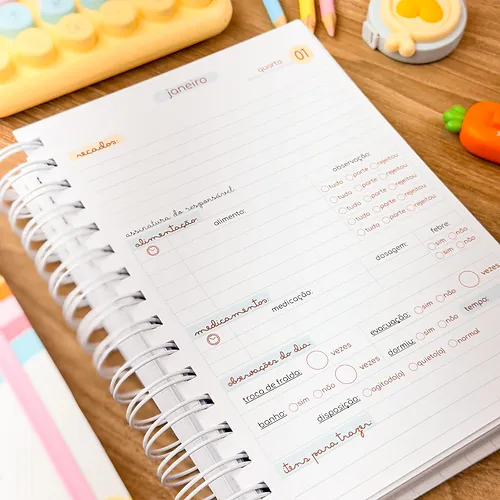 janeiro
quarta 01
recados:
assinatura do responsável
alimentação alimento: observação:
tudo parte rejeitou
tudo parte rejeitou
tudo parte rejeitou
tudo parte rejeitou
medicamentos medicação: dosagem: febre:
sim não
sim não
observações do dia
troca de fralda: vezes evacuação: sim não vezes
banho: sim não vezes dormiu: sim não tempo:
disposição: agitado(a) quieto(a) normal
itens para trazer